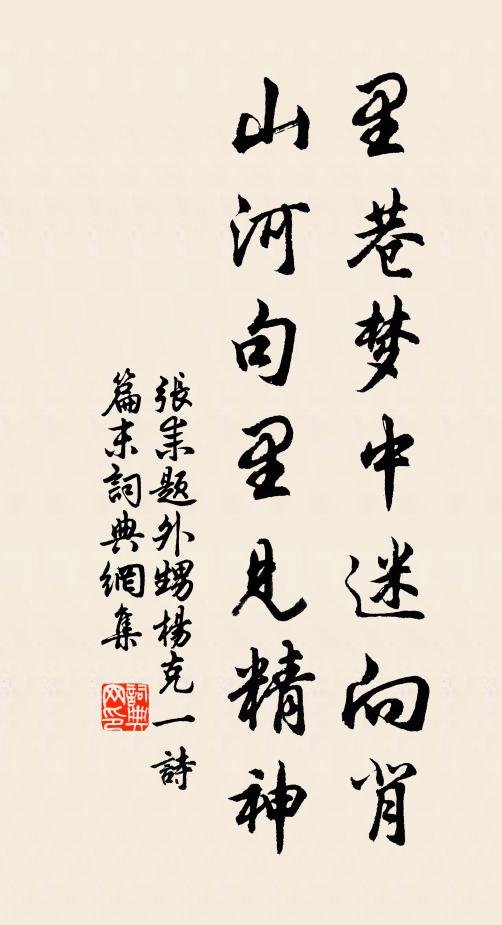 里巷梦中迷向背
山河句里見精神
張耒題外甥楊克一詩
篇末詞典網集
詞典网印